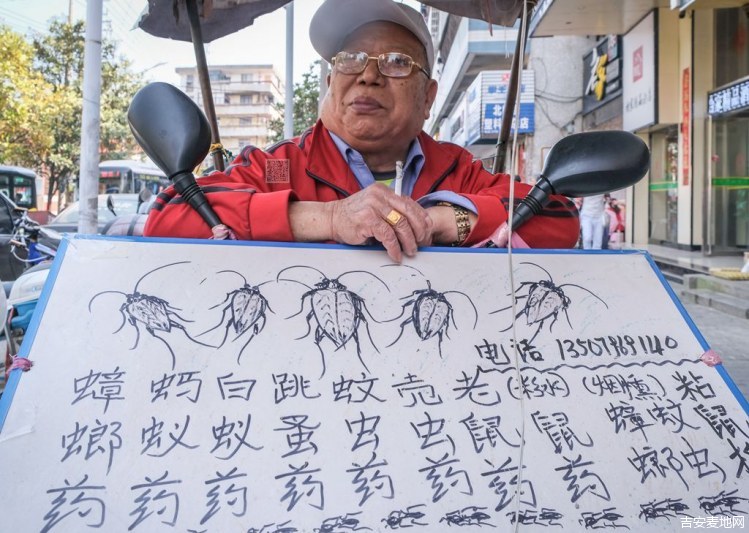 电话 13507969140
蟑螂药
蚂蚁药
白蚁药
跳蚤药
蚊虫药
壳虫药
老鼠药
鼠药
蟑螂
蚊虫
粘鼠
吉安麦地网